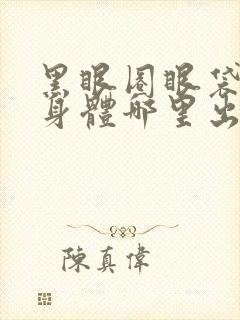 黑眼圈眼袋
身體哪里出
陳真偉